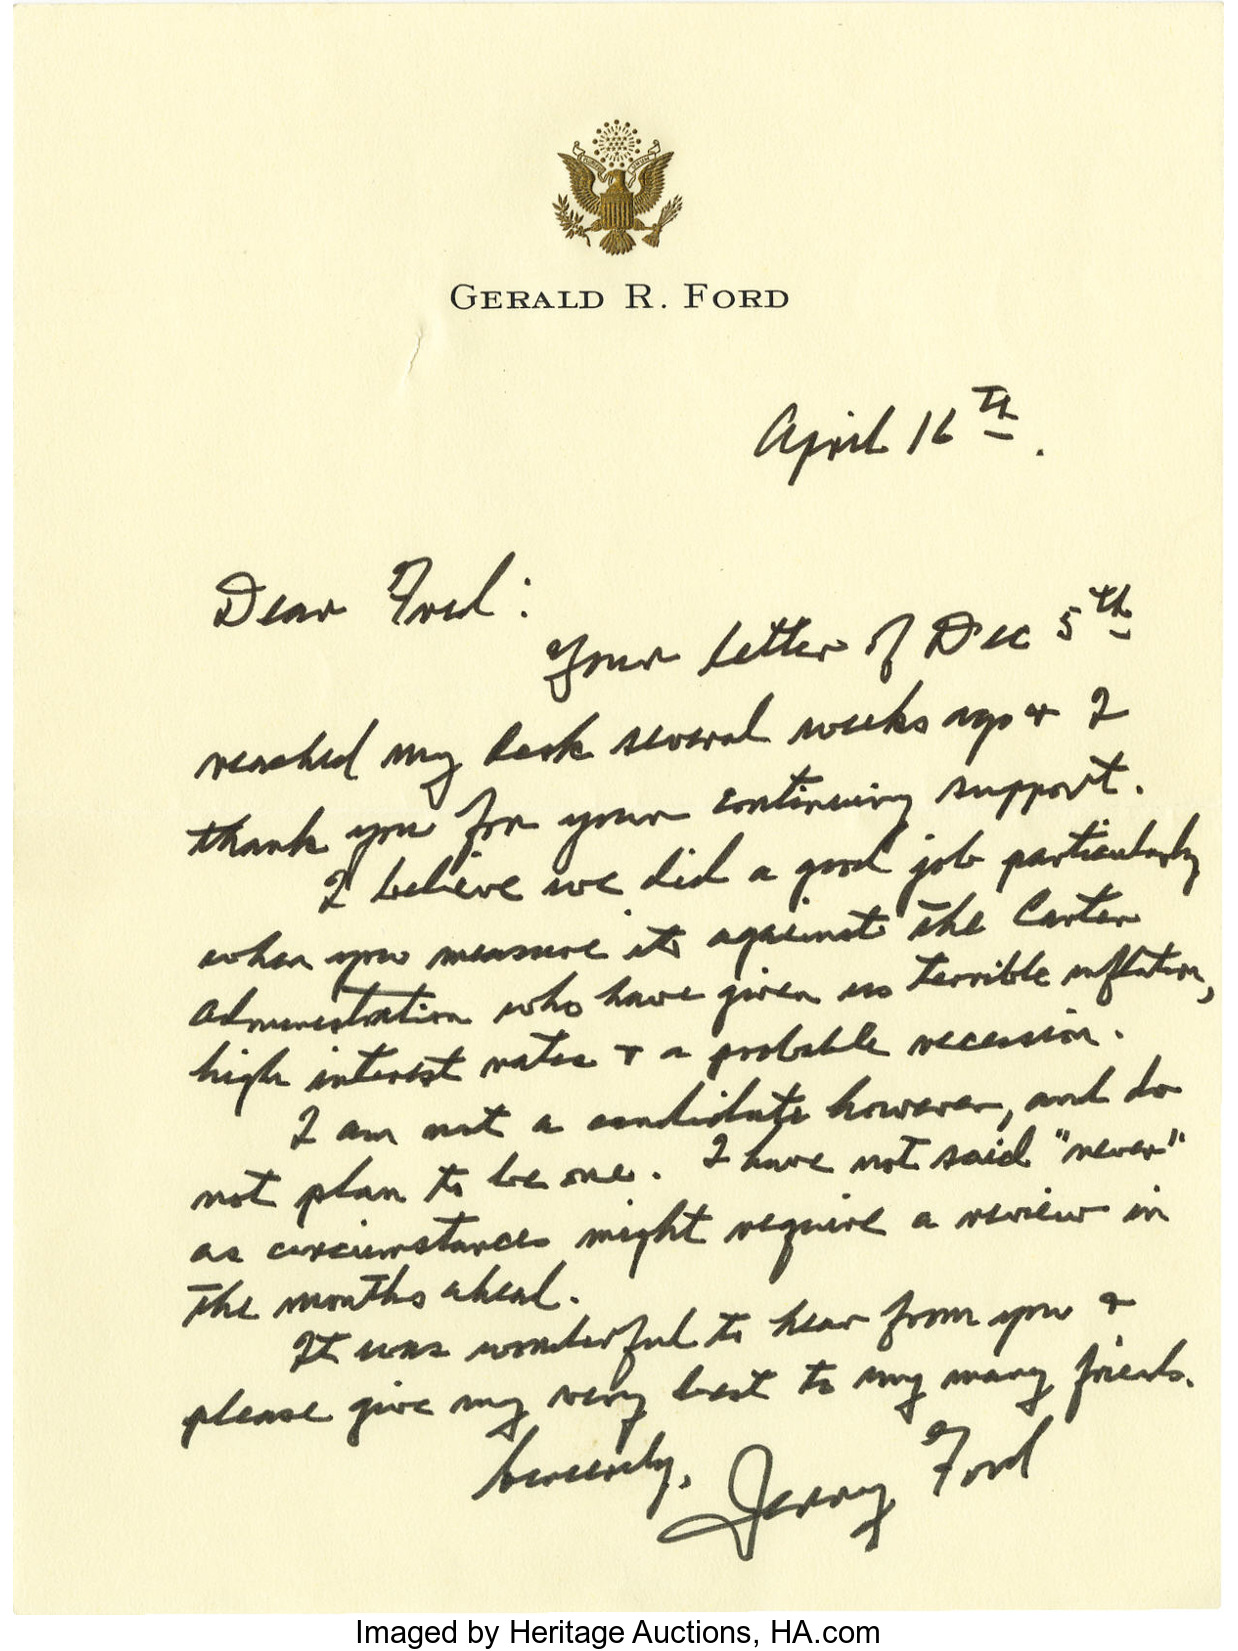 GERALD R. FORD
April 16th.
Dear Fred:
Your letter of Dec 5th
reached my desk several weeks ago + I
thank you for your continuing support.
I believe we did a good job particularly
when you measure it against the Carter
administration who have given us terrible inflation,
high interest rates + a probable recession.
I am not a candidate however, and do
not plan to be one. I have not said "never"
as circumstances might require a review in
the months ahead.
It was wonderful to hear from you +
please give my very best to my many friends.
Sincerely,
Jerry Ford
Imaged by Heritage Auctions, HA.com